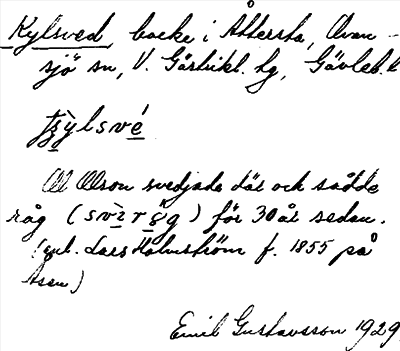 Kylsved backe i Åttersta, Ovan-
sjö sn, V. Gästrikl. hg, Gävleb. l
Ol Olson svedjade där och sådde
råg ( ) för 30 år sedan.
(enl. Lars Holmström f. 1855 på
Åsen)
Emil Gustavsson 1929